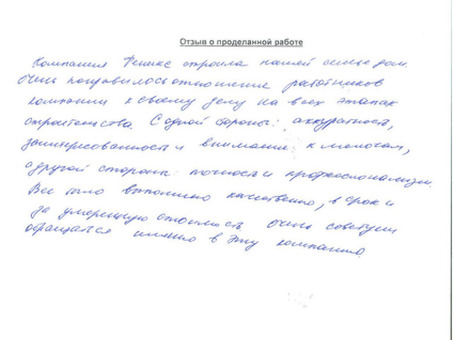 Отзыв о проделанной работе
Компания Феникс строила нашей семье дом.
Очень понравилось отношение работников
компании к своему делу на всех этапах
строительства. С одной стороны: аккуратность,
заинтересованность и внимание к мелочам,
с другой стороны: точность и профессионализм.
Все было выполнено качественно, в срок и
за умеренную стоимость очень советуем
обращатся именно в эту компанию.